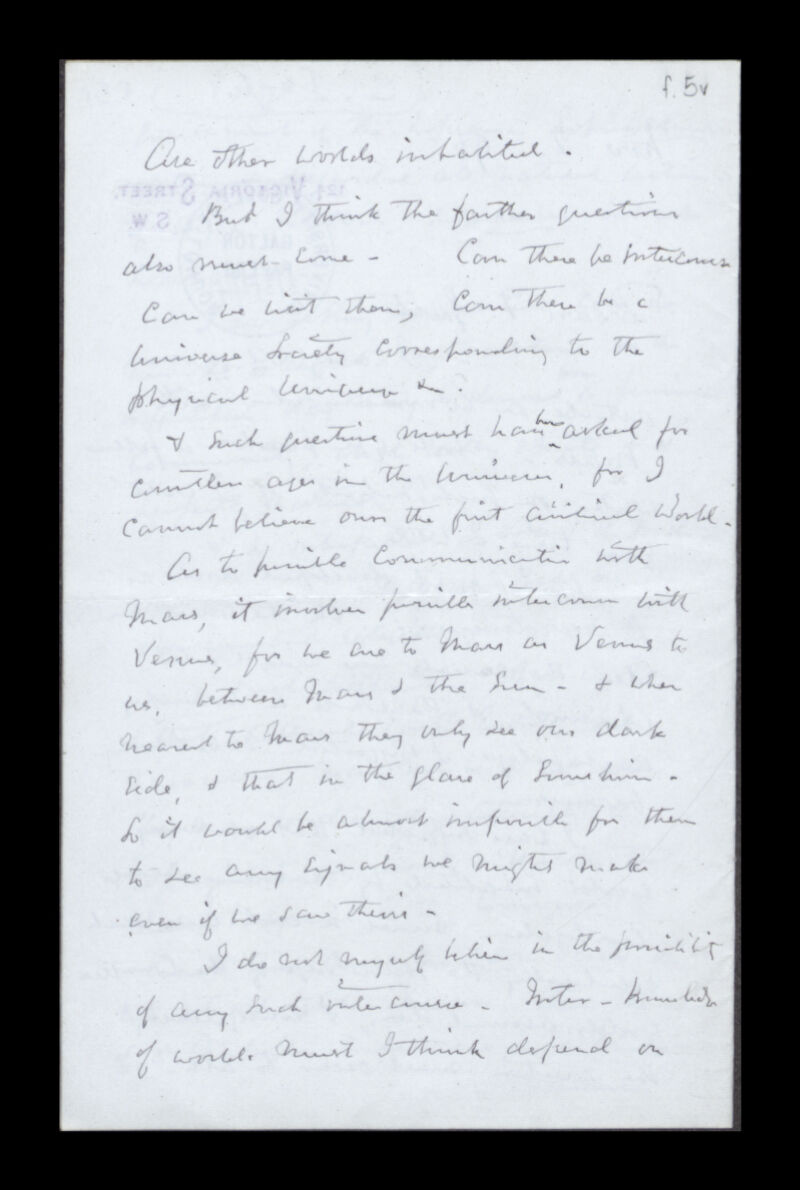 f. 5v
Are other worlds inhabited.
But I think the farther questions
also must come - Can there be intercourse
Can we visit them, Can there be a
Universe Society corresponding to the
physical Universe &c.
& such questions must have been asked for
countless ages in the Universe, for I
cannot believe ours the first civilized world.
As to possible Communication with
Mars, it involves possible intercourse with
Venus, for we are to Mars as Venus to
us, between Mars & the Sun - & when
nearest to Mars they only see our dark
side, & that in the glare of Sunshine -
So it would be almost impossible for them
to see any signals we might make
even if we saw theirs -
I do not myself believe in the possibility
of any such intercourse - Inter-knowledge
of worlds must I think depend on
121 VICTORIA STREET,
S.W.